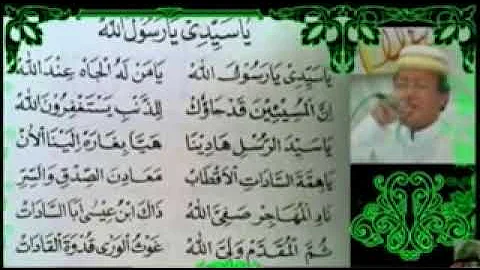 يَاسَيِّدِىْ يَارَسُوْلَ اللهْ
يَاسَيِّدِىْ يَارَسُوْلَ اللهْ يَامَنْ لَهُ الْجَاهْ عِنْدَ اللهْ
اِنَّ الْمُسِيْئِيْنَ قَدْ جَاؤُكْ لِلذَّنْبِ يَسْتَغْفِرُوْنَ اللهْ
يَاسَيِّدَ الرُّسُلْ هَادِيْنَا هَيَّا بِغَارَةْ اِلَيْنَا الْأٰنْ
يَاهِمَّةَ السَّادَاتْ اَلْاَقْطَابْ مَعَادِنَ الصِّدْقِ وَالسِّرّ
نَادِ الْمُهَاجِرْ صَفِيَّ اللهْ ذَاكَ ابْنُ عِيْسٰى اَبَا السَّادَاتْ
ثُمَّ الْمُقَدَّمْ وَلِيَّ اللهْ غَوْثَ الْوَرٰى قُدْوَةَ الْقَادَاتْ